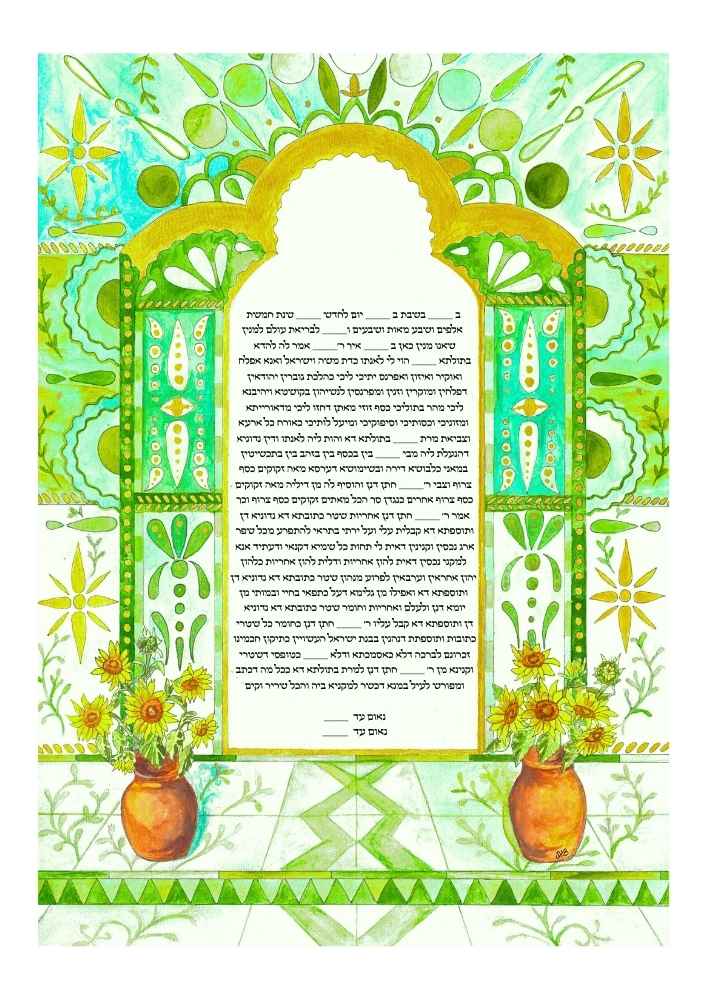 ב _____ בשבת ב _____ יום לחדשי _____ שנת חמשת
אלפים ושבע מאות ושבעים ו_____ לבריאת עולם למנין
שאנו מנין כאן ב _____ איך ר׳_____ אמר לה להדא
בתולתא _____ הוי לי לאנתו כדת משה וישראל ואנא אפלח
ואוקיר ואיזון ואפרנס יתיכי ליכי כהלכת גוברין יהודאין
דפלחין ומוקרין וזנין ומפרנסין לנשיהון בקושטא ויהיבנא
ליכי מהר בתוליכי כסף זוזי מאתן דחזו ליכי מדאורייתא
ומזוניכי וכסותיכי וסיפוקיכי ומיעל לותיכי כאורח כל ארעא
וצביאת מרת _____ בתולתא דא והות ליה לאנתו ודין נדוניא
דהנעלת ליה מבי _____ בין בכסף בין בזהב בין בתכשיטין
במאני דלבושא דירה ובשימושא דערסא מאה זקוקים כסף
צרוף וצבי ר׳_____ חתן דנן והוסיף לה מן דיליה מאה זקוקים
כסף צרוף אחרים כנגדן סך הכל מאתים זקוקים כסף צרוף וכך
אמר ר׳ _____ חתן דנן אחריות שטר כתובתא דא נדוניא דן
ותוספתא דא קבלית עלי ועל ירתי בתראי להתפרע מכל שפר
ארג נכסין וקנינין דאית לי תחות כל שמיא דקנאי ודעתיד אנא
למקני נכסין דאית להון אחריות ודלית להון אחריות כלהון
יהון אחראין וערבאין לפרוע מנהון שטר כתובתא דא נדוניא דן
ותוספתא דא ואפילו מן גלימא דעל כתפאי בחיי ובמותי מן
יומא דנן ולעלם ואחריות וחומר שטר כתובתא דא נדוניא
דן ותוספתא דא קבל עליו ר׳ _____ חתן דנן כחומר כל שטרי
כתובות ותוספתת דנהגין בבנת ישראל העשויין כתיקון חכמינו
זכרונם לברכה דלא כאסמכתא ודלא _____ כטופסי דשטרי
וקנינא מן ר׳ _____ חתן דנן למרת בתולתא דא ככל מה דכתב
ומפורש לעיל במנא דכשר למקניא ביה והכל שריר וקים
נאום עד _____
נאום עד _____